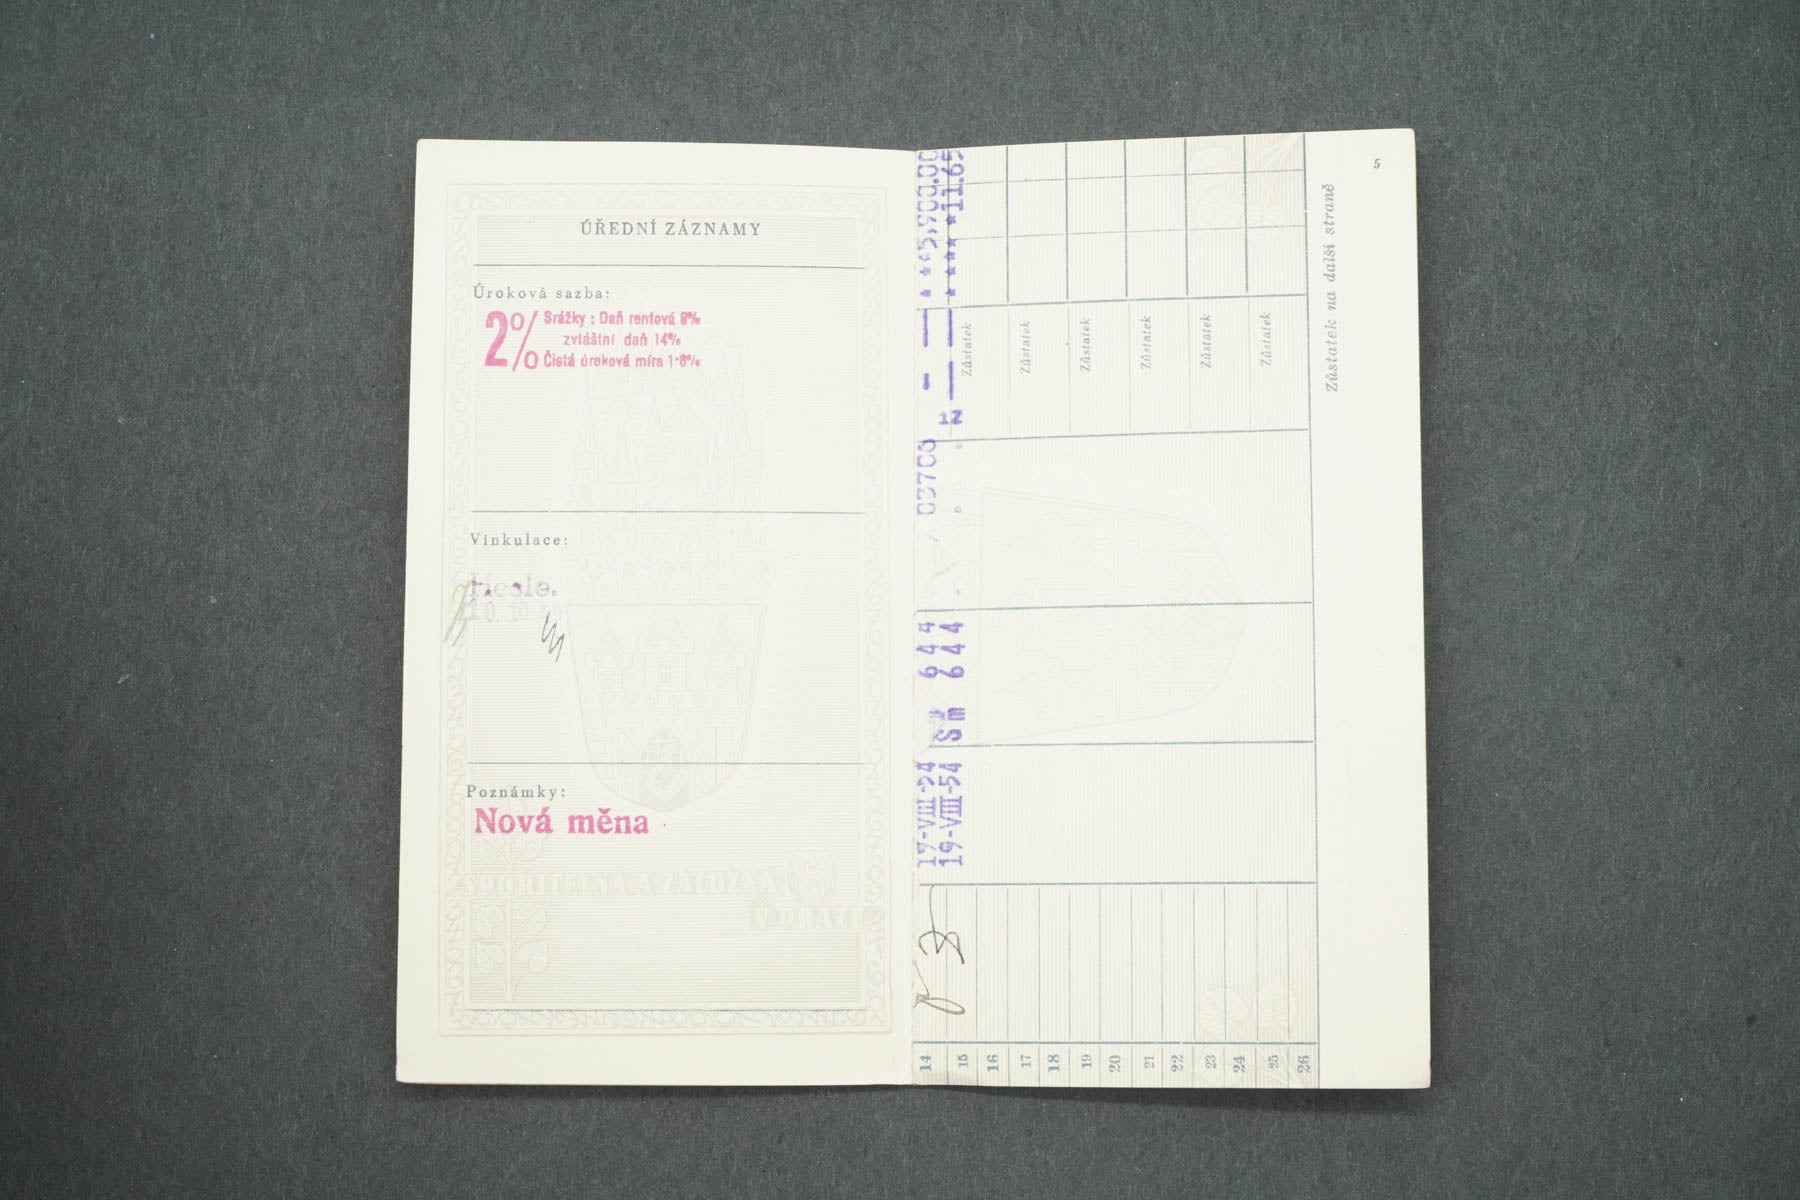 ÚŘEDNÍ ZÁZNAMY
Úroková sazba:
2% Srážky : Daň rentová 8%
zvláštní daň 14%
Čistá úroková míra 1·6%
Vinkulace:
Heslo.
10. 10
Poznámky:
Nová měna
SPOŘITELNA A ZÁLOŽNA
V PRAZE
5
14 17-VIII-54 644 03706 - — **5,900.00
15 19-VIII-54 Sm 644 — ****11.65
Zůstatek
16
17 Zůstatek
18
19 Zůstatek
20
21 Zůstatek
22
23 Zůstatek
24
25 Zůstatek
26
Zůstatek na další straně